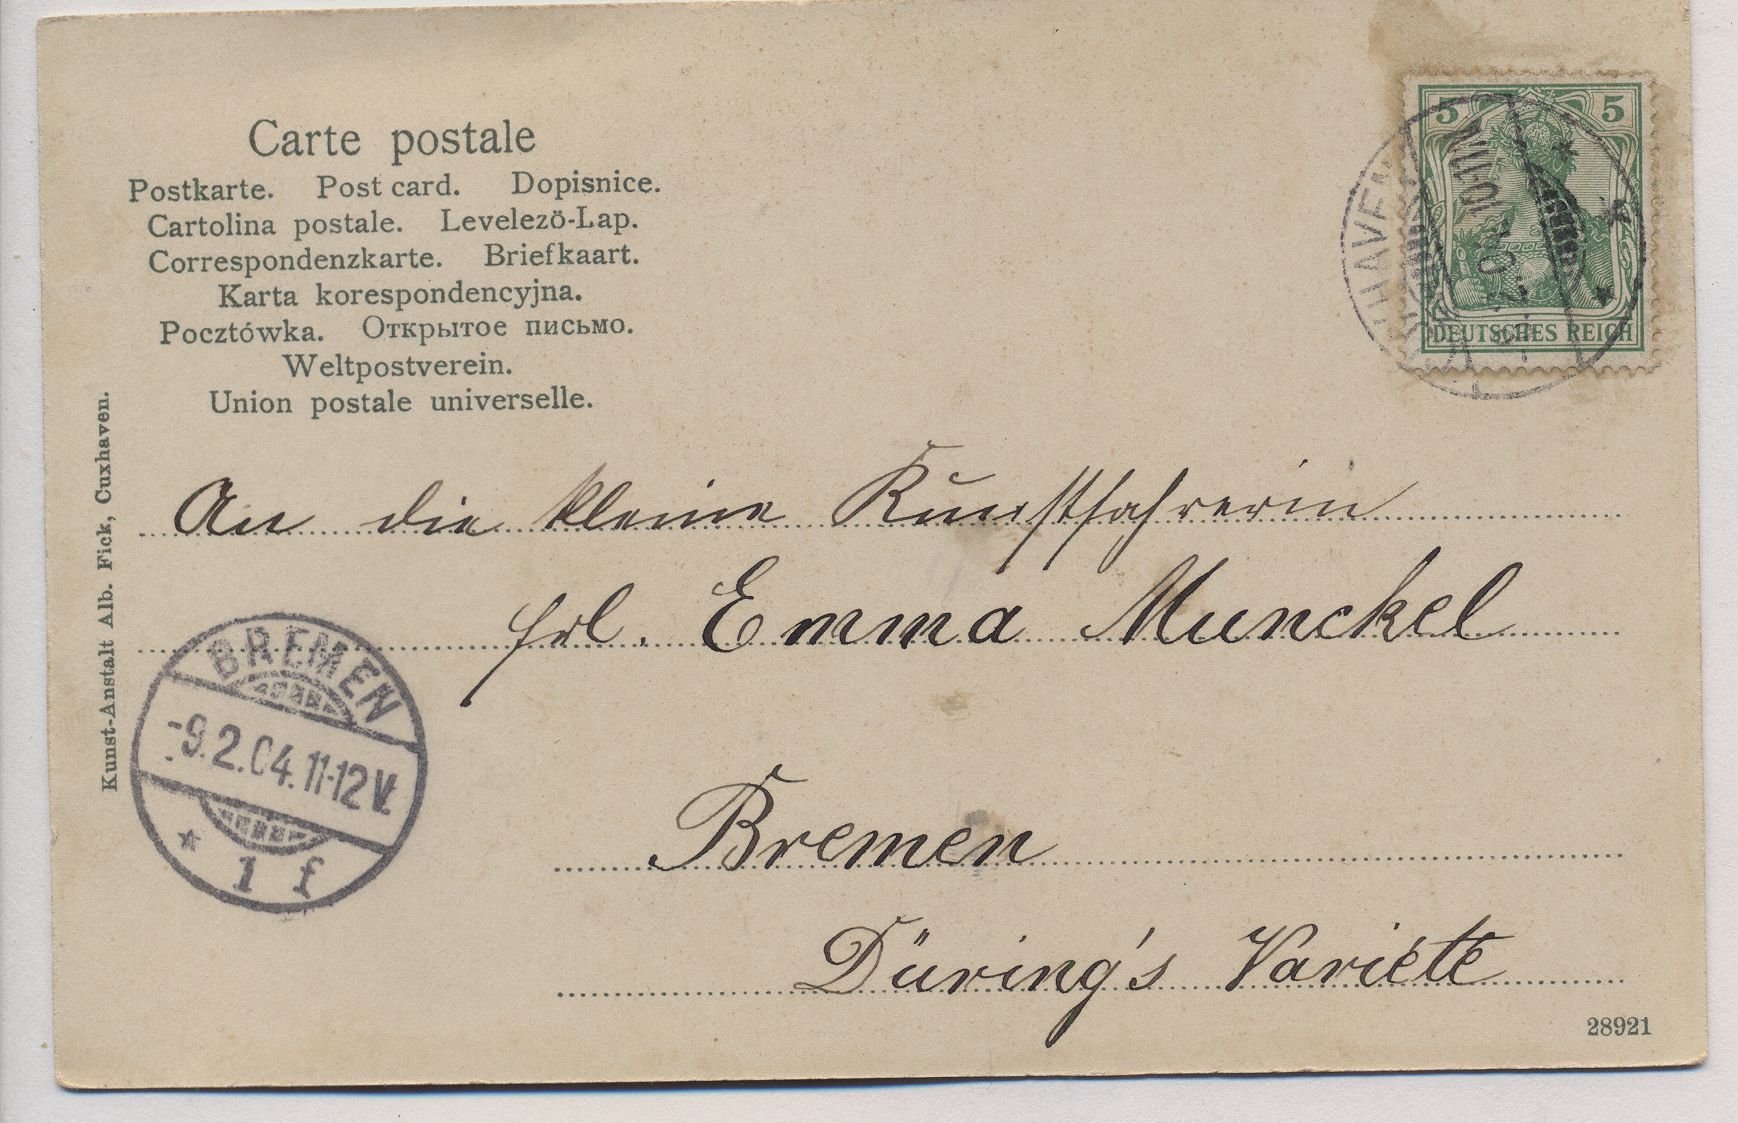 Carte postale
Postkarte. Post card. Dopisnice.
Cartolina postale. Levelező-Lap.
Correspondenzkarte. Briefkaart.
Karta korespondencyjna.
Pocztówka. Открытое письмо.
Weltpostverein.
Union postale universelle.
Kunst-Anstalt Alb. Fick, Cuxhaven.
5 5
DEUTSCHES REICH
An die kleine Kunstfahrerin
Frl. Emma Munckel
Bremen
Düring's Variété
BREMEN
-9.2.04.11-12V.
* 1 f
28921